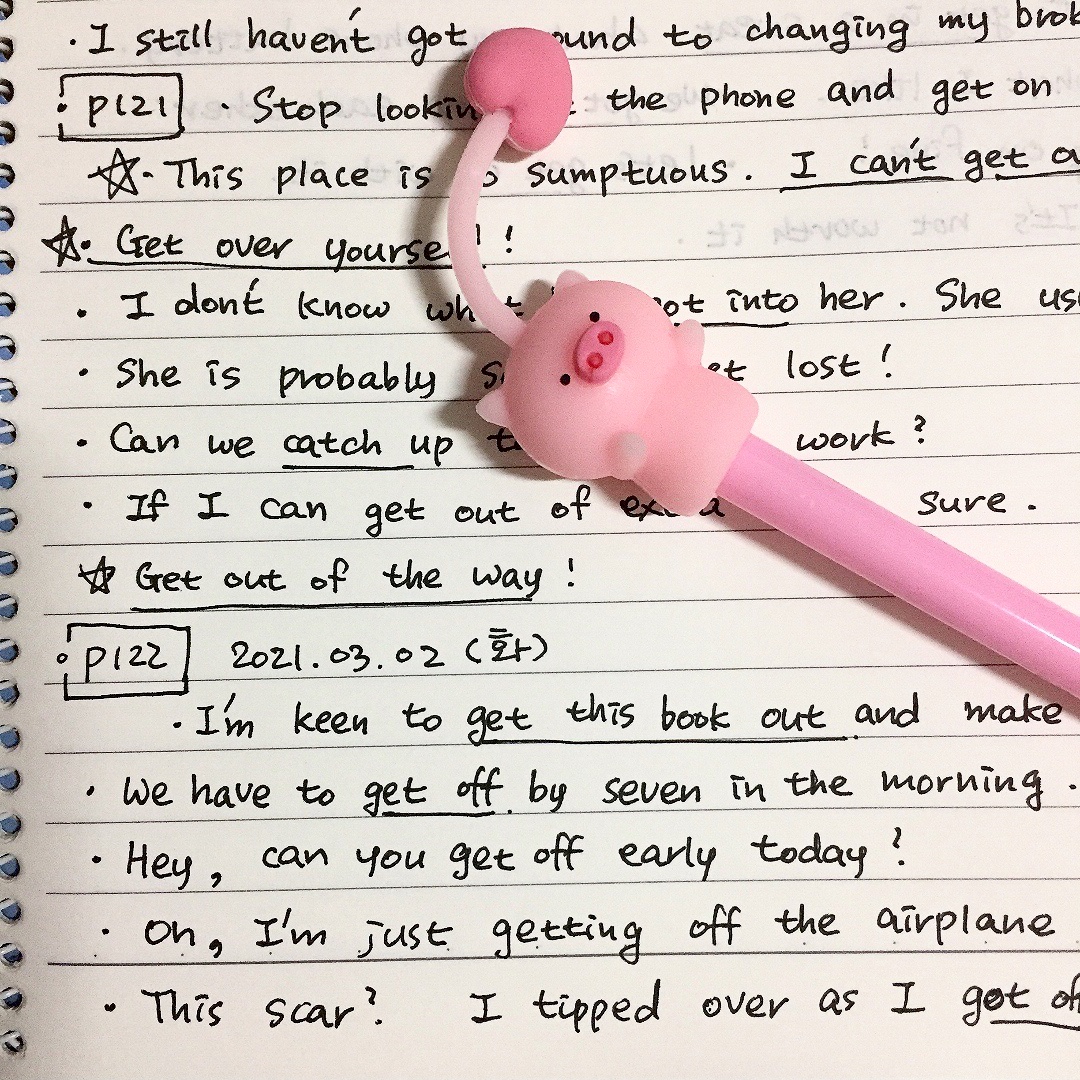 · I still haven't got to changing my
p121 · Stop the phone and get on
☆· This place is sumptuous. I can't get
☆· Get over yourself!!
· I don't know into her. She
· She is probably lost!
· Can we catch up work?
· If I can get out of extra sure.
☆ Get out of the way!
p122 2021.03.02 (화)
· I'm keen to get this book out and make
· We have to get off by seven in the morning.
· Hey, can you get off early today?
· Oh, I'm just getting off the airplane
· This scar? I tipped over as I got